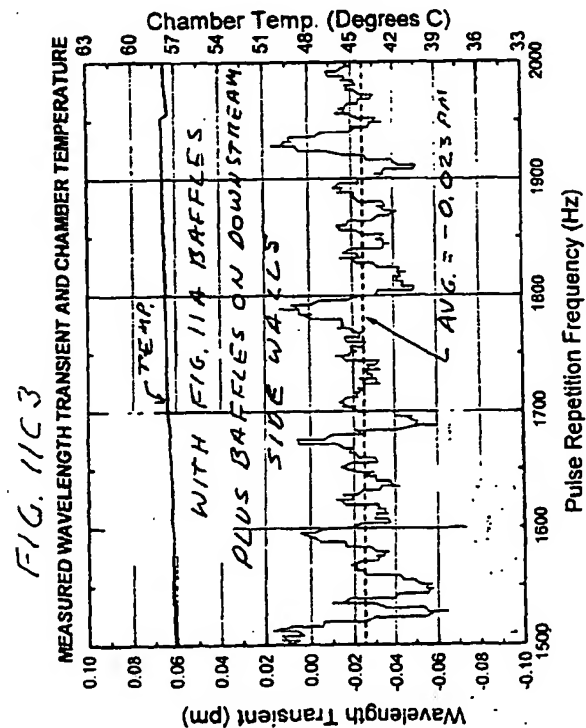 FIG. 11C3
MEASURED WAVELENGTH TRANSIENT AND CHAMBER TEMPERATURE
Chamber Temp. (Degrees C)
63 60 57 54 51 48 45 42 39 36 33
TEMP.
WITH FIG. 11A BAFFLES
PLUS BAFFLES ON DOWNSTREAM
SIDE WALLS
AVG. = -0.023 PM
0.10 0.08 0.06 0.04 0.02 0.00 -0.02 -0.04 -0.06 -0.08 -0.10
Wavelength Transient (pm)
1500 1600 1700 1800 1900 2000
Pulse Repetition Frequency (Hz)